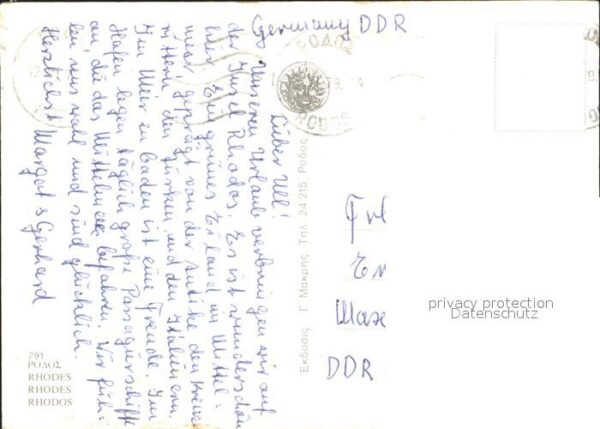 Germany DDR
Lieber Ulli!
Unseren Urlaub verbringen wir auf
der Insel Rhodos. Es ist wunderschön
hier. Ein grünes Eiland im Mittel-
meer, geprägt von der Antike den Kreuz-
rittern, den Türken und den Italienern.
Im Meer zu baden ist eine Freude. Im
Hafen legen täglich große Passagierschiffe
an, die das Mittelmeer befahren. Wir füh-
len uns wohl und sind glücklich.
Herzlichst Margot & Gerhard
ΡΟΔΟΣ
RODOS
Εκδοσεις Γ. Μακρης, Τηλ. 24 215 Ροδος
Frl
Er
Max
DDR
privacy protection
Datenschutz
291
ΡΟΔΟΣ
RHODES
RHODES
RHODOS